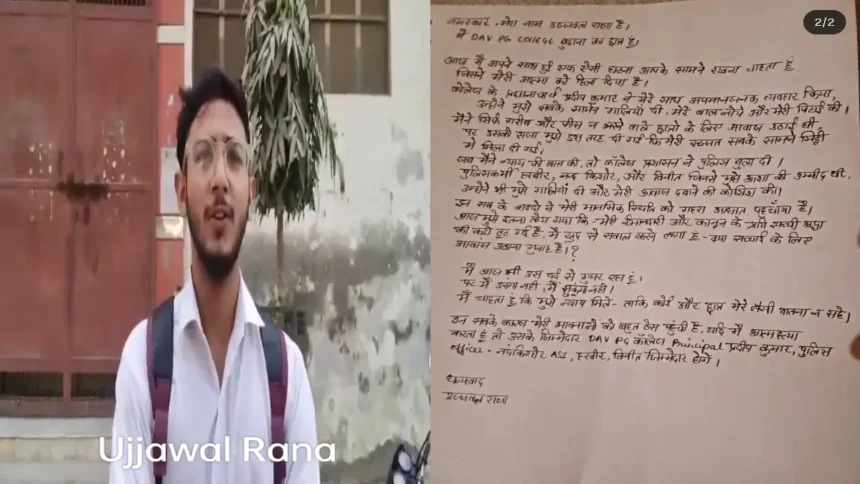 Ujjawal Rana
2/2
नमस्कार, मेरा नाम उज्जवल राणा है।
मैं DAV PG COLLEGE बुढ़ाना का छात्र हूं।
आज मैं अपने साथ हुई एक ऐसी घटना आपके सामने रखना चाहता हूं
जिसने मेरी आत्मा को हिला दिया है।
कॉलेज के प्रधानाचार्य प्रदीप कुमार ने मेरे साथ अपमानजनक व्यवहार किया,
उन्होंने मुझे सबके सामने गालियां दी, मेरे बाल नोचे और मेरी पिटाई की।
मैंने सिर्फ गरीब और फीस न भरने वाले छात्रों के लिए आवाज उठाई थी
पर उसकी सजा मुझे इस तरह दी गई कि मेरी इज्जत सबके सामने मिट्टी
में मिला दी गई।
जब मैंने न्याय की बात की, तो कॉलेज प्रशासन ने पुलिस बुला दी।
पुलिसकर्मी हरबीर, नन्द किशोर, और विनीत जिनसे मुझे आशा थी उम्मीद थी,
उन्होंने भी मुझे गालियां दी और मेरी आवाज दबाने की कोशिश की।
इन सब के कारणों ने मेरी मानसिक स्थिति को गहरा आघात पहुँचाया है।
आज मुझे इतना तोड़ा गया कि - मेरी ईमानदारी और कानून के प्रति सच्ची श्रद्धा
की कड़ी टूट गई है- मैं खुद से सवाल करने लगा हूं - क्या सच्चाई के लिए
आवाज उठाना गुनाह है।?
मैं आज भी उस दर्द से गुजर रहा हूं।
पर मैं डरूंगा नहीं, मैं झुकूंगा नहीं।
मैं चाहता हूं कि मुझे न्याय मिले - ताकि कोई और छात्र मेरे जैसी यातना न सहे।
इन सबके कारण मेरी भावनाओं को बहुत ठेस पहुंची है, यदि मैं आत्महत्या
करता हूं तो उसके जिम्मेदार DAV PG कॉलेज Principal प्रदीप कुमार, पुलिस
officer - नंदकिशोर ASI, हरबीर, विनीत जिम्मेदार होंगे।
धन्यवाद
उज्जवल राणा